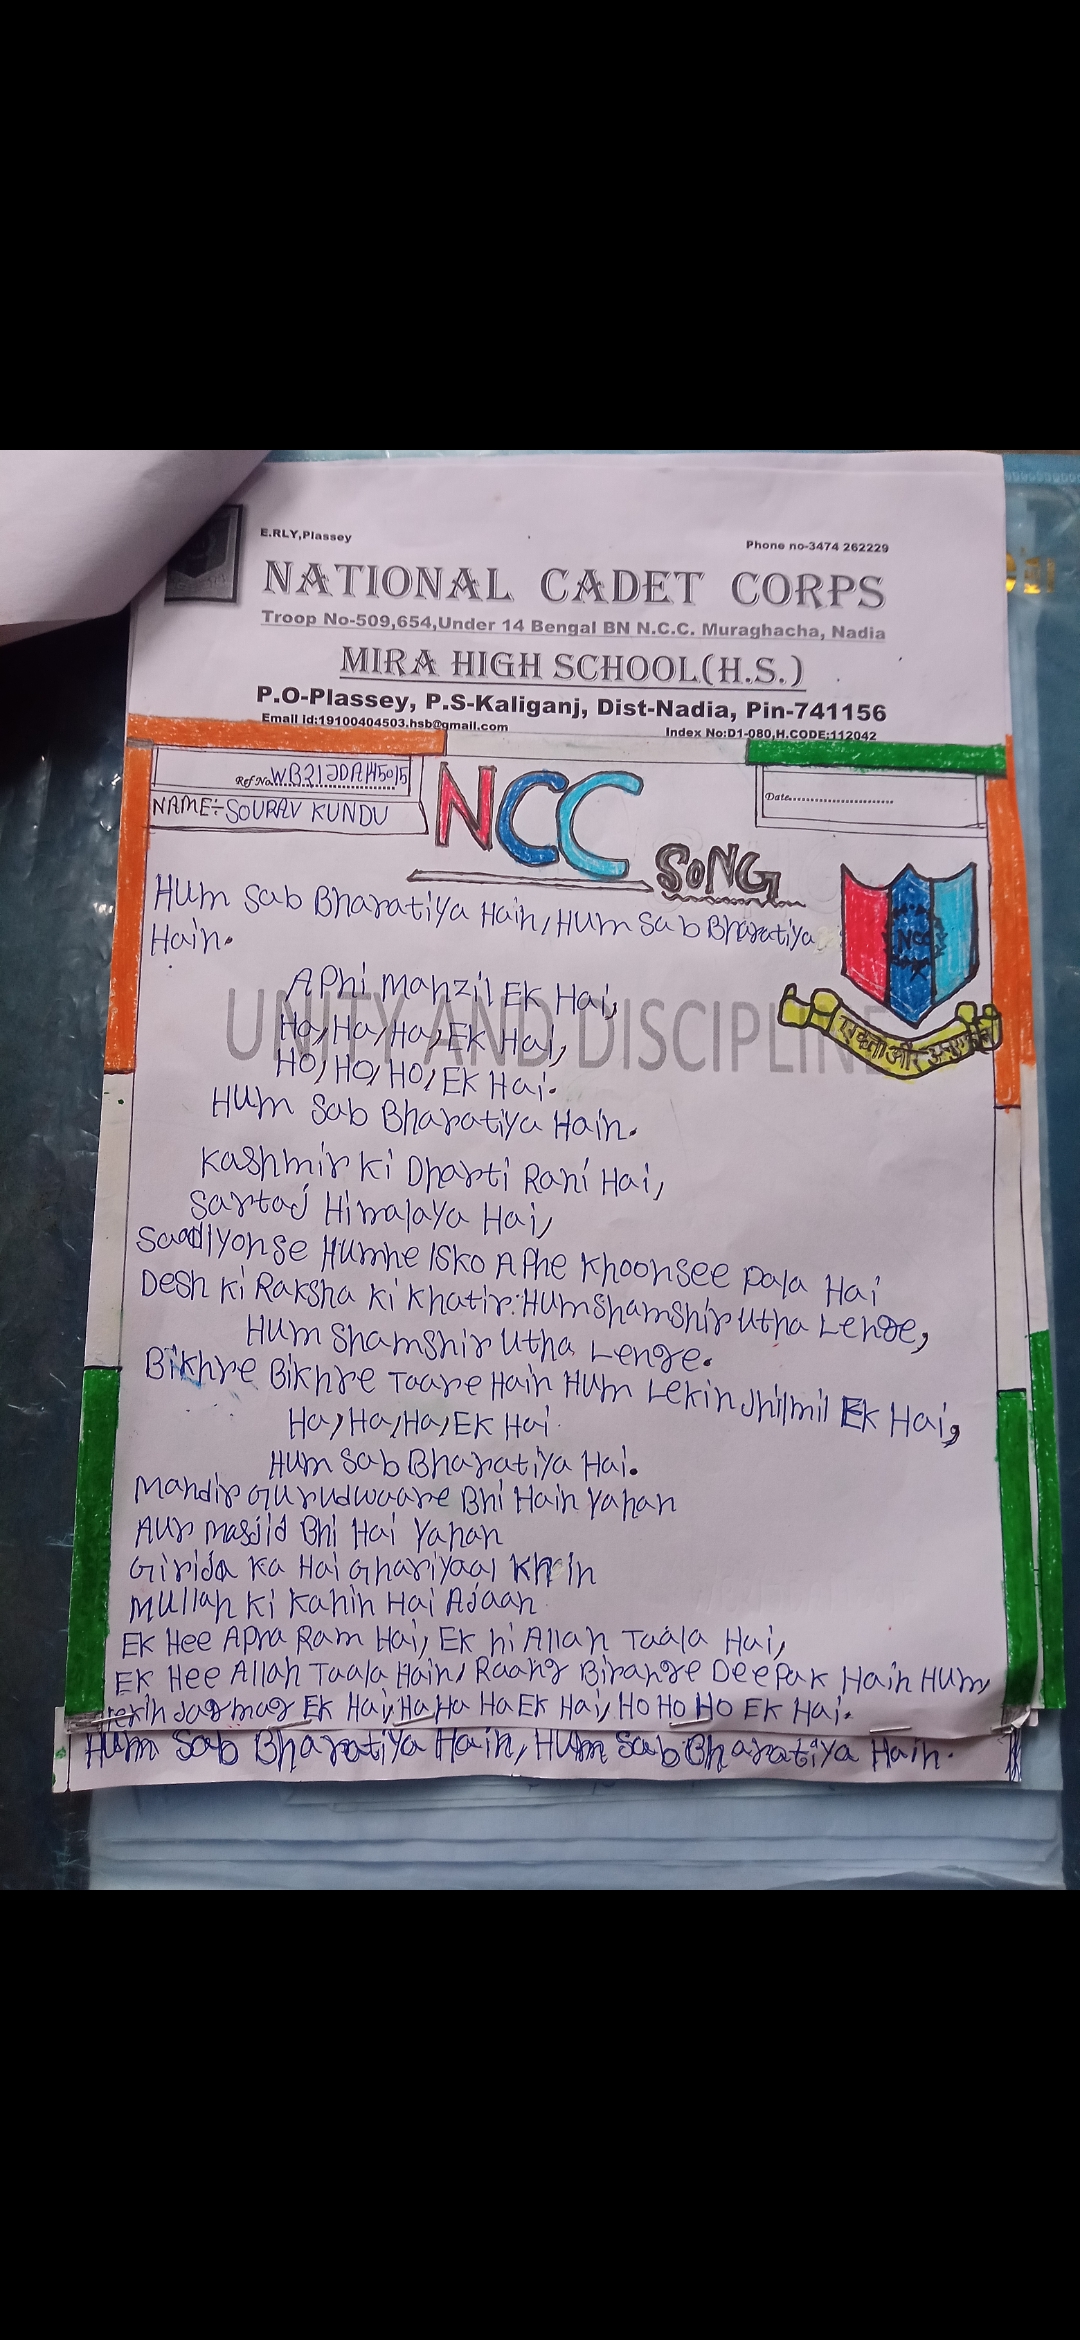 E.RLY,Plassey
Phone no-3474 262229
NATIONAL CADET CORPS
Troop No-509,654,Under 14 Bengal BN N.C.C. Muraghacha, Nadia
MIRA HIGH SCHOOL(H.S.)
P.O-Plassey, P.S-Kaliganj, Dist-Nadia, Pin-741156
Email Id:19100404503.hsb@gmail.com
Index No:D1-080,H.CODE:112042
Ref No. WB21JDAH5015
Date
NAME:- SOURAV KUNDU
NCC
SONG
Hum Sab Bharatiya Hain, Hum Sab Bharatiya
Hain.
NCC
एकता और अनुशासन
UNITY AND DISCIPLINE
Apni Manzil Ek Hai,
Ha, Ha, Ha, Ek Hai,
Ho, Ho, Ho, Ek Hai.
Hum Sab Bharatiya Hain.
Kashmir Ki Dharti Rani Hai,
Sartaj Himalaya Hai,
Saadiyon se Humne Isko Apne Khoonsee Pala Hai
Desh Ki Raksha Ki Khatir Hum Shamshir Utha Lenge,
Hum Shamshir Utha Lenge.
Bikhre Bikhre Taare Hain Hum Lekin Jhilmil Ek Hai,
Ha, Ha, Ha, Ek Hai
Hum Sab Bharatiya Hai.
Mandir Gurudwaare Bhi Hain Yahan
Aur Masjid Bhi Hai Yahan
Girija Ka Hai Ghariyaal Khin
Mullah Ki Kahin Hai Ajaan
Ek Hee Apna Ram Hai, Ek hi Allah Taala Hai,
Ek Hee Allah Taala Hain, Raang Birange Deepak Hain Hum,
lekin Jagmag Ek Hai, Ha Ha Ha Ek Hai, Ho Ho Ho Ek Hai.
Hum Sab Bharatiya Hain, Hum Sab Bharatiya Hain.